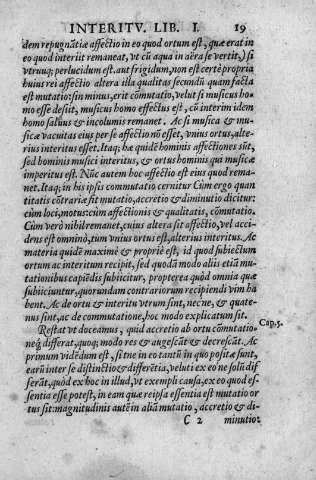 INTERITV. LIB. I. 19
dem repugnātiæ affectio in eo quod ortum est, quæ erat in
eo quod interiit remaneat, vt cū aqua in aëra se vertit,) si
vtrunq; perlucidum est. aut frigidum, non est certè propria
huius rei affectio altera illa qualitas secundū quam facta
est mutatio: sin minus, erit cōmutatio, velut si musicus ho-
mo esse desiit, musicus homo effectus est, cū interim idem
homo saluus & incolumis remanet. Ac si musica & mu-
sicæ vacuitas eius per se affectio nō esset, vnius ortus, alte-
rius interitus esset. Itaq; hæ quidē hominis affectiones sūt,
sed hominis musici interitus, & ortus hominis qui musicæ
imperitus est. Nūc autem hoc affectio est eius quod rema-
net. Itaq; in his ipsis commutatio cernitur Cùm ergo quan
titatis cōtrariæ sit mutatio, accretio & diminutio dicitur:
cùm loci, motus: cùm affectionis & qualitatis, cōmutatio.
Cùm verò nihil remanet, cuius altera sit affectio, vel acci-
dens est omnino, tum vnius ortus est, alterius interitus. Ac
materia quidē maximè & propriè est, id quod subiectum
ortum ac interitum recipit, sed quodā modo aliis etiā mu-
tationibus capiēdis subiicitur, propterea quòd omnia quæ
subiiciuntur, quorundam contrariorum recipiendi vim ha
bent. Ac de ortu & interitu vtrum sint, nec ne, & quate-
nus sint, ac de commutatione, hoc modo explicatum sit.
Restat vt doceamus, quid accretio ab ortu cōmutatio- Cap. 5.
neq; differat, quoq; modo res & augescāt & decrescāt. Ac
primum vidēdum est, sit ne in eo tantū in quo positæ sunt,
earū inter se distinctio & differētia, veluti ex eo ne solū dif
ferāt, quòd ex hoc in illud, vt exempli causa, ex eo quod es-
sentia esse potest, in eam quæ reipsa essentia est mutatio or
tus sit: magnitudinis autē in aliā mutatio, accretio & di-
C 2 minutio: